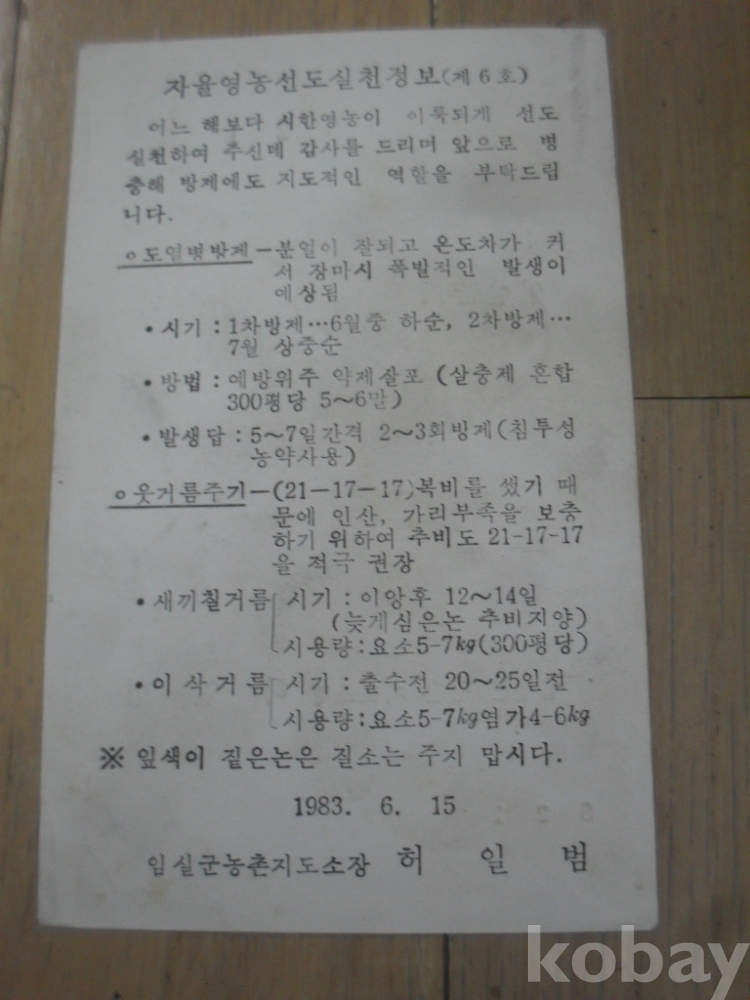 자율영농선도실천정보(제6호)
어느 해보다 시한영농이 이룩되게 선도
실천하여 주신데 감사를 드리며 앞으로 병
충해 방제에도 지도적인 역할을 부탁드립
니다.
ㅇ도열병방제-분얼이 잘되고 온도차가 커
서 장마시 폭발적인 발생이
예상됨
•시기 : 1차방제…6월중 하순, 2차방제…
7월 상중순
•방법 : 예방위주 약제살포 (살충제 혼합
300평당 5~6말)
•발생답 : 5~7일간격 2~3회방제(침투성
농약사용)
ㅇ웃거름주기-(21-17-17)복비를 썼기 때
문에 인산, 가리부족을 보충
하기 위하여 추비도 21-17-17
을 적극 권장
•새끼칠거름 시기 : 이앙후 12~14일
(늦게심은논 추비지양)
시용량:요소5-7kg(300평당)
•이삭거름 시기 : 출수전 20~25일전
시용량:요소5-7kg염가4-6kg
※ 잎색이 짙은논은 질소는 주지 맙시다.
1983. 6. 15
임실군농촌지도소장 허 일 범
kobay